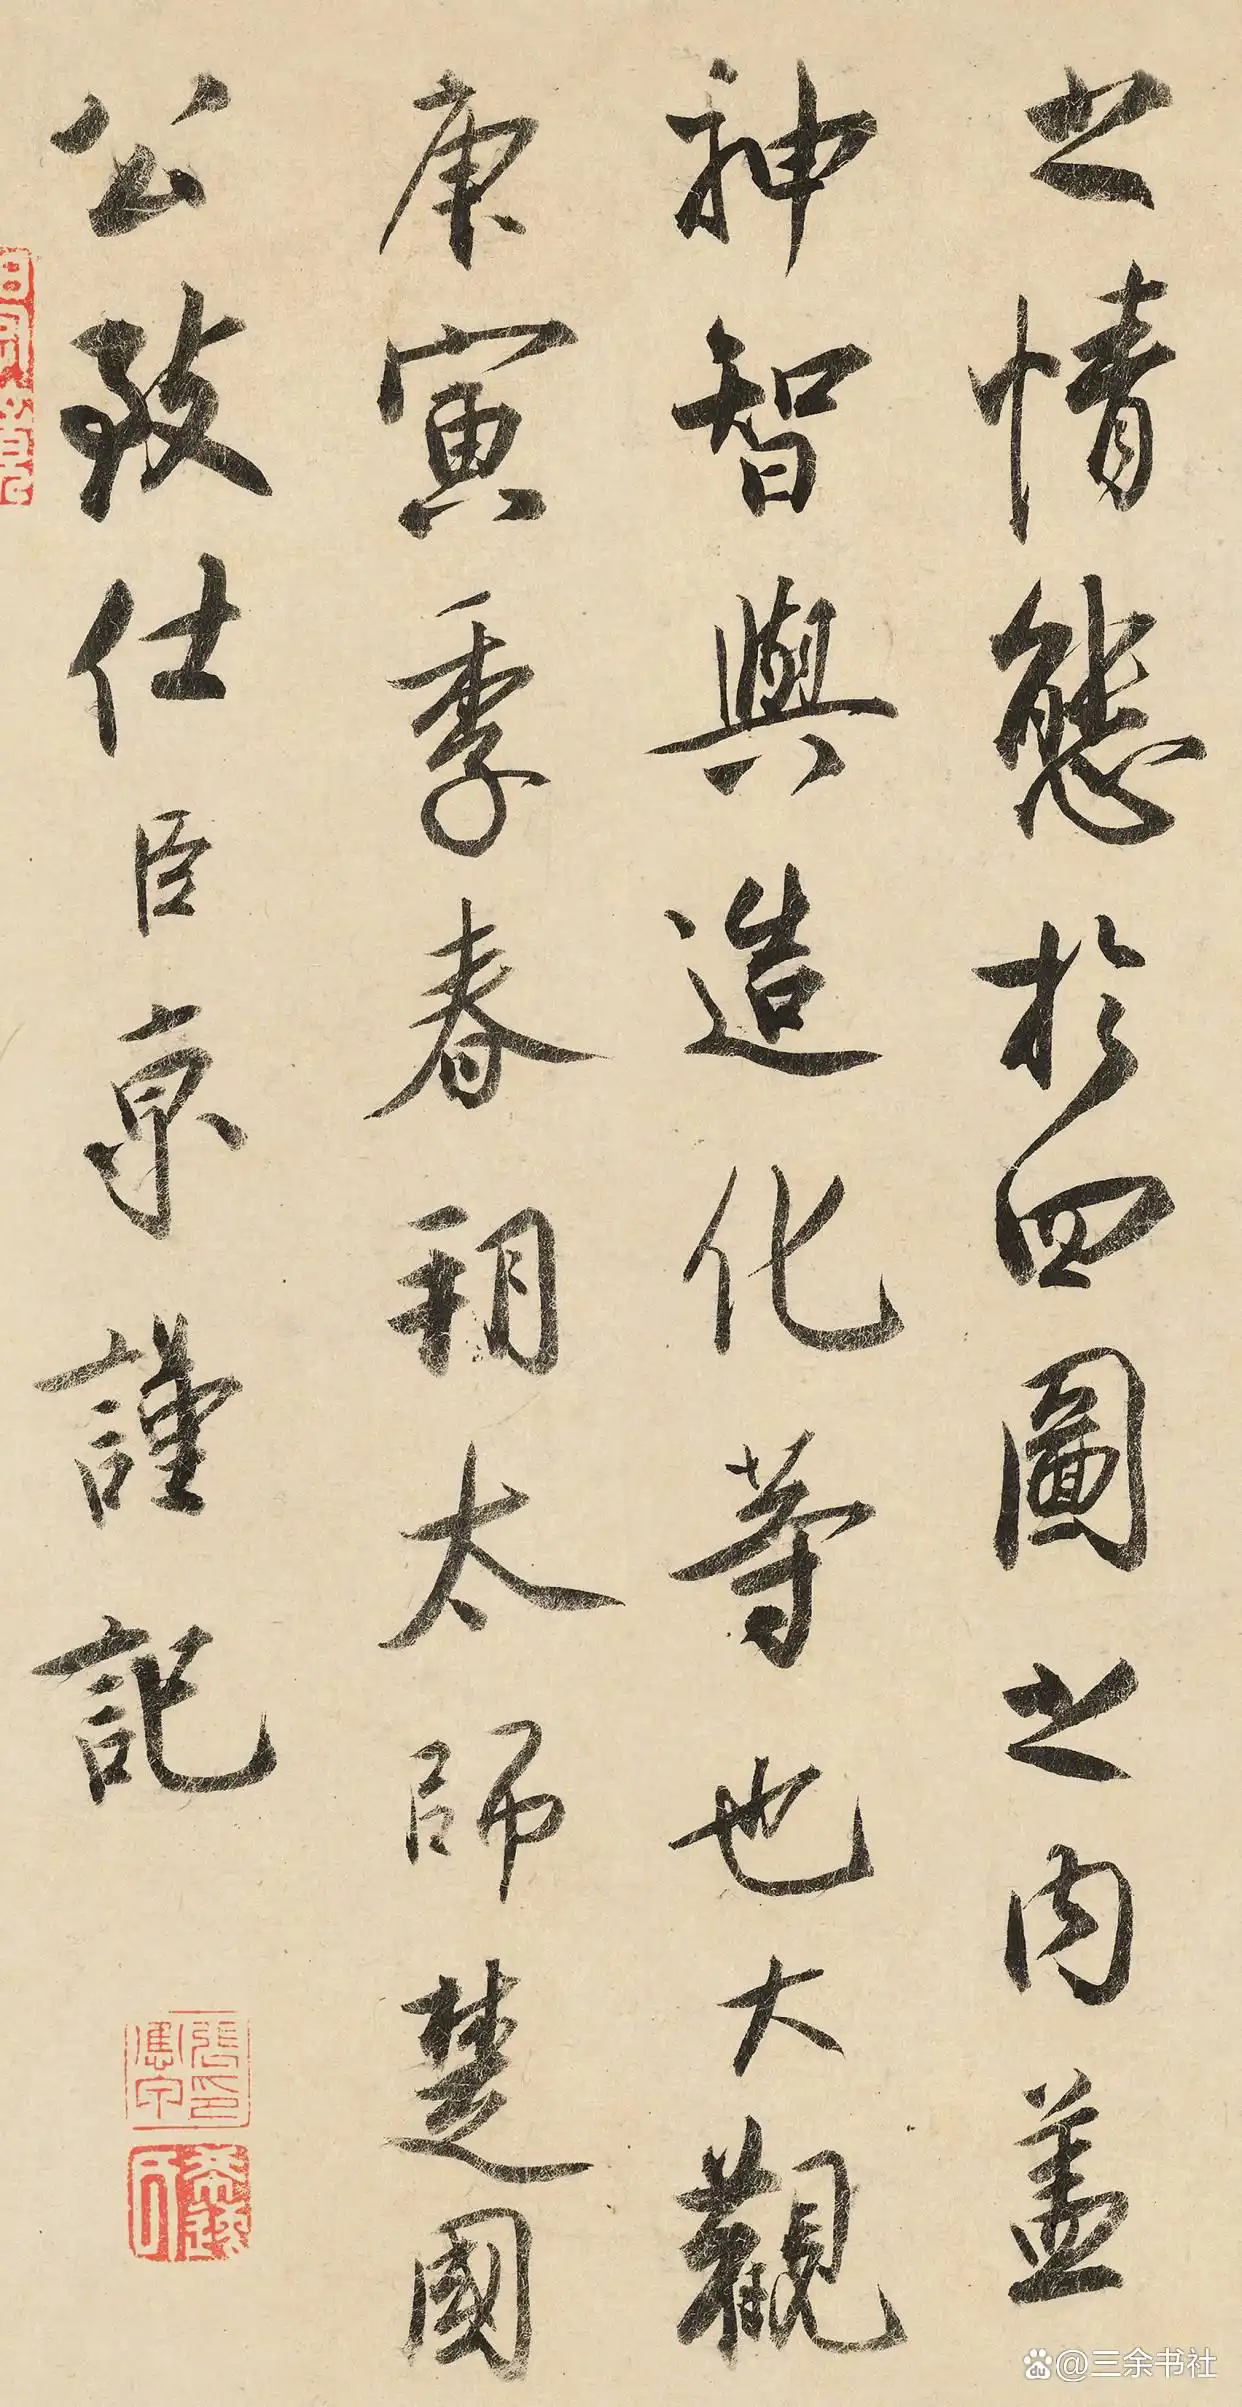 之情態於四圖之內蓋
神智與造化等也大觀
庚寅季春朔太師楚國
公致仕臣京謹記
@三余书社